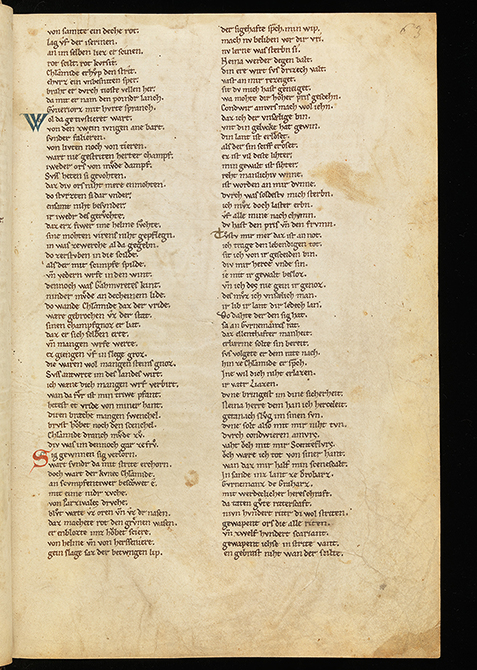 von samite ein deche rot.
lag vf der iserinen.
an im selben liez er scinen.
rot scilt rot kvrsit.
Chlamide erhvp den strit.
chvrz ein vnbesniten sper.
braht er dvrch tioste vellen her.
da mit er nam den poinder lanch.
Gvveriorz mit hvrte spranch.
Wol da getiostieret wart.
von den zwein ivngen ane bart.
svnder falieren.
von livten noch von tieren.
wart nie gestriten herter champf.
iweder ors von mvde dampf.
Svs heten si gevohten.
daz div ors niht mere enmohten.
do stvrzten si dar vnder.
ensamt niht besvnder.
ir iweder des gervohte.
daz erz fiwer ime helme svohte.
sine mohten virens niht gepflegen.
in was zewerche al da gegeben.
do zerstvben in die scilde.
als der mit scimpfe spilde.
vn vedern wrfe in den wint.
dennoch was Gahmvretes kint.
ninder mvde an decheinem lide.
do wande Chlamide daz der vride.
wære gebrochen vz der stat.
sinen champfgenoz er bat.
daz er sich selben erte.
vn mangen wrfe werte.
ez giengen vf in slege groz.
die waren wol mangen steins gnoz.
Svs antwrte im des landes wirt.
ich wæne dich mangen wrf verbirt.
wan da fvr ist min triwe pfant.
hetest et vride von miner hant.
dirn bræche mangen swenchel.
brvst hovbet noch den scenchel.
Chlamide dranch mvde zv.
div was im dennoch gar zefrv.
Sig gewnnen sig verlorn.
wart svnder da mit strite erchorn.
doch wart der kvnec Chlamide.
an scvmpfentewer bescowet e.
mit eime nider zvche.
von Parzivales drvche.
blvt wæte vz oren vn vz der nasen.
daz machete rot den grvnen wasen.
er enblozte imz hovbet sciere.
von helme vn von hersseniere.
gein slage saz der betwngen lip.
der sigehafte sprch. min wip.
mach nv beliben vor dir vri.
nv lerne waz sterben si.
Neina werder degen balt.
din ere wirt svs drizech valt.
vast an mir rezeiget.
sit dv mich hast geneiget.
wa mohte dir hoher pris gescehn.
Condwir amvrs mach wol iehn.
daz ich der vnsælige bin.
vnt din gelvcke hat gewin.
din lant ist erloset.
als der sin scef eroset.
ez ist vil deste lihter.
min gewalt ist sihter.
reht manlichiv wnne.
ist worden an mir dvnne.
dvrch waz soldestv mich sterben.
ich mvz doch laster erben.
vf alle mine nach chvmn.
dv hast den pris vn den frvmn.
Tvstv mir mer daz ist an not.
ich trage den lebendigen tot.
sit ich von ir gesceiden bin.
div mir herce vnde sin.
ie mit ir gewalt besloz.
vn ich des nie gein ir genoz.
des mvz ich vnsælich man.
ir lib ir lant dir ledech lan.
Do dahte der den sig hat.
sa an Gvrnemanzes rat.
daz ellenthafter manheit.
erbærme solte sin bereit.
svs volgete er dem rate nach.
hin ze Chlamide er sprch.
Ine wil dich niht erlazen.
ir vater Liazen.
dvne bringest im dine sicherheit.
Neina herre dem han ich herceleit.
getan ich slvg im sinen svn.
dvne solt also mit mir niht tvn.
dvrch condwieren amvrs.
vaht ovch mit mir Scenteflvrs.
ovch wære ich tot von siner hant.
wan daz mir half min scenescalt.
In sande inz lant ze Brobarz.
Gvrnemanz de Graharz.
mit werdeclicher heres chraft.
da taten gvte riterscaft.
nivn hvndert riter di wol striten.
gewapent ors die alle riten.
vn zwelf hvndert sariant.
gewapent ichse in strite vant.
en gebrast niht wan der scilte.